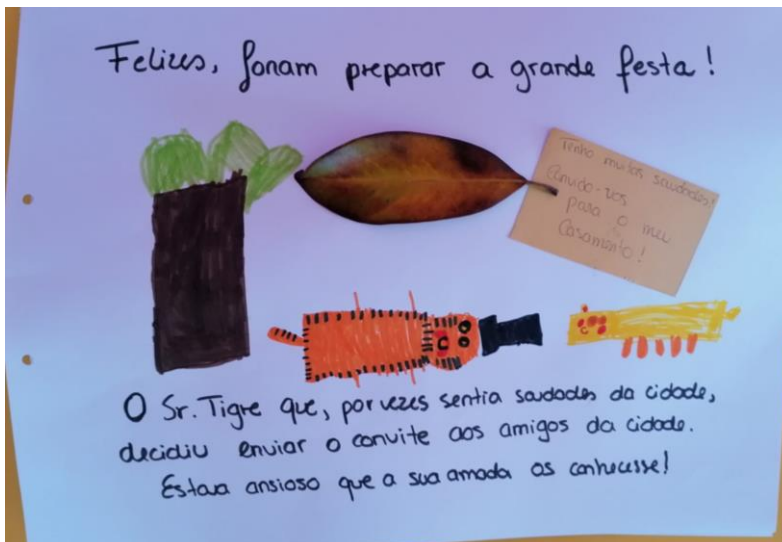 Felizes, foram preparar a grande festa!
Tenho muitas saudades!
Convido-vos
para o meu
Casamento!
O Sr. Tigre que, por vezes sentia saudades da cidade,
decidiu enviar o convite aos amigos da cidade.
Estava ansioso que a sua amada os conhecesse!